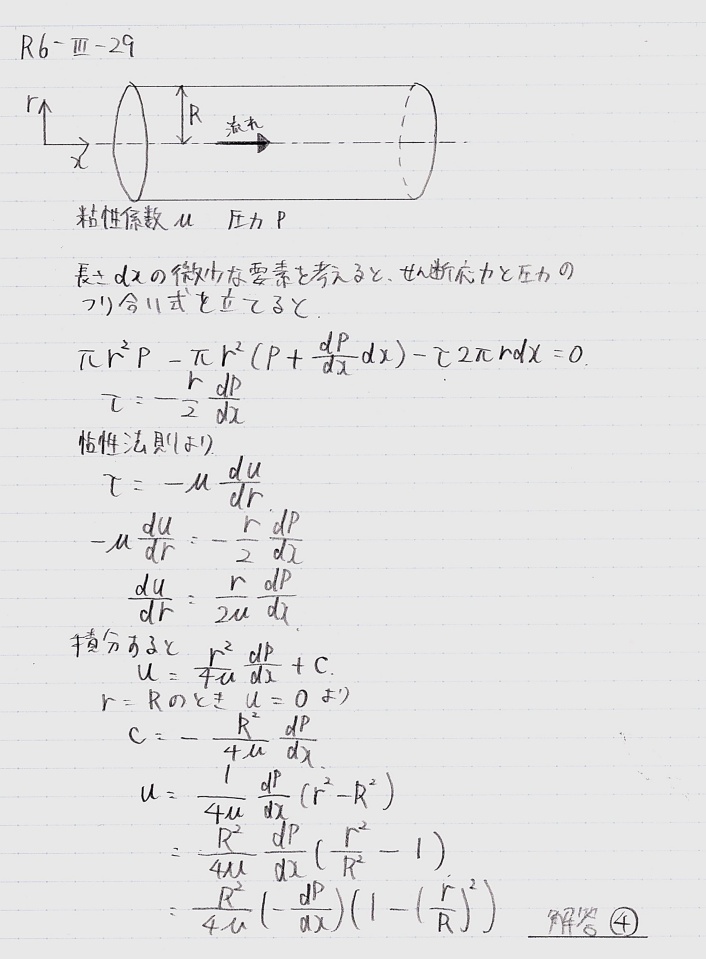 R6-Ⅲ-29
r
R
流れ
x
粘性係数 μ 圧力 P
長さ dx の微少な要素を考えると、せん断応力と圧力の
つり合い式を立てると
πr²P - πr²(P + dP/dx dx) - τ2πrdx = 0.
τ = - r/2 dP/dx
粘性法則より
τ = -μ du/dr
-μ du/dr = - r/2 dP/dx
du/dr = r/2μ dP/dx
積分すると
u = r²/4μ dP/dx + C.
r = R のとき u = 0 より
C = - R²/4μ dP/dx
u = 1/4μ dP/dx (r² - R²)
= R²/4μ dP/dx (r²/R² - 1)
= R²/4μ (-dP/dx)(1 - (r/R)²)
解答 ④